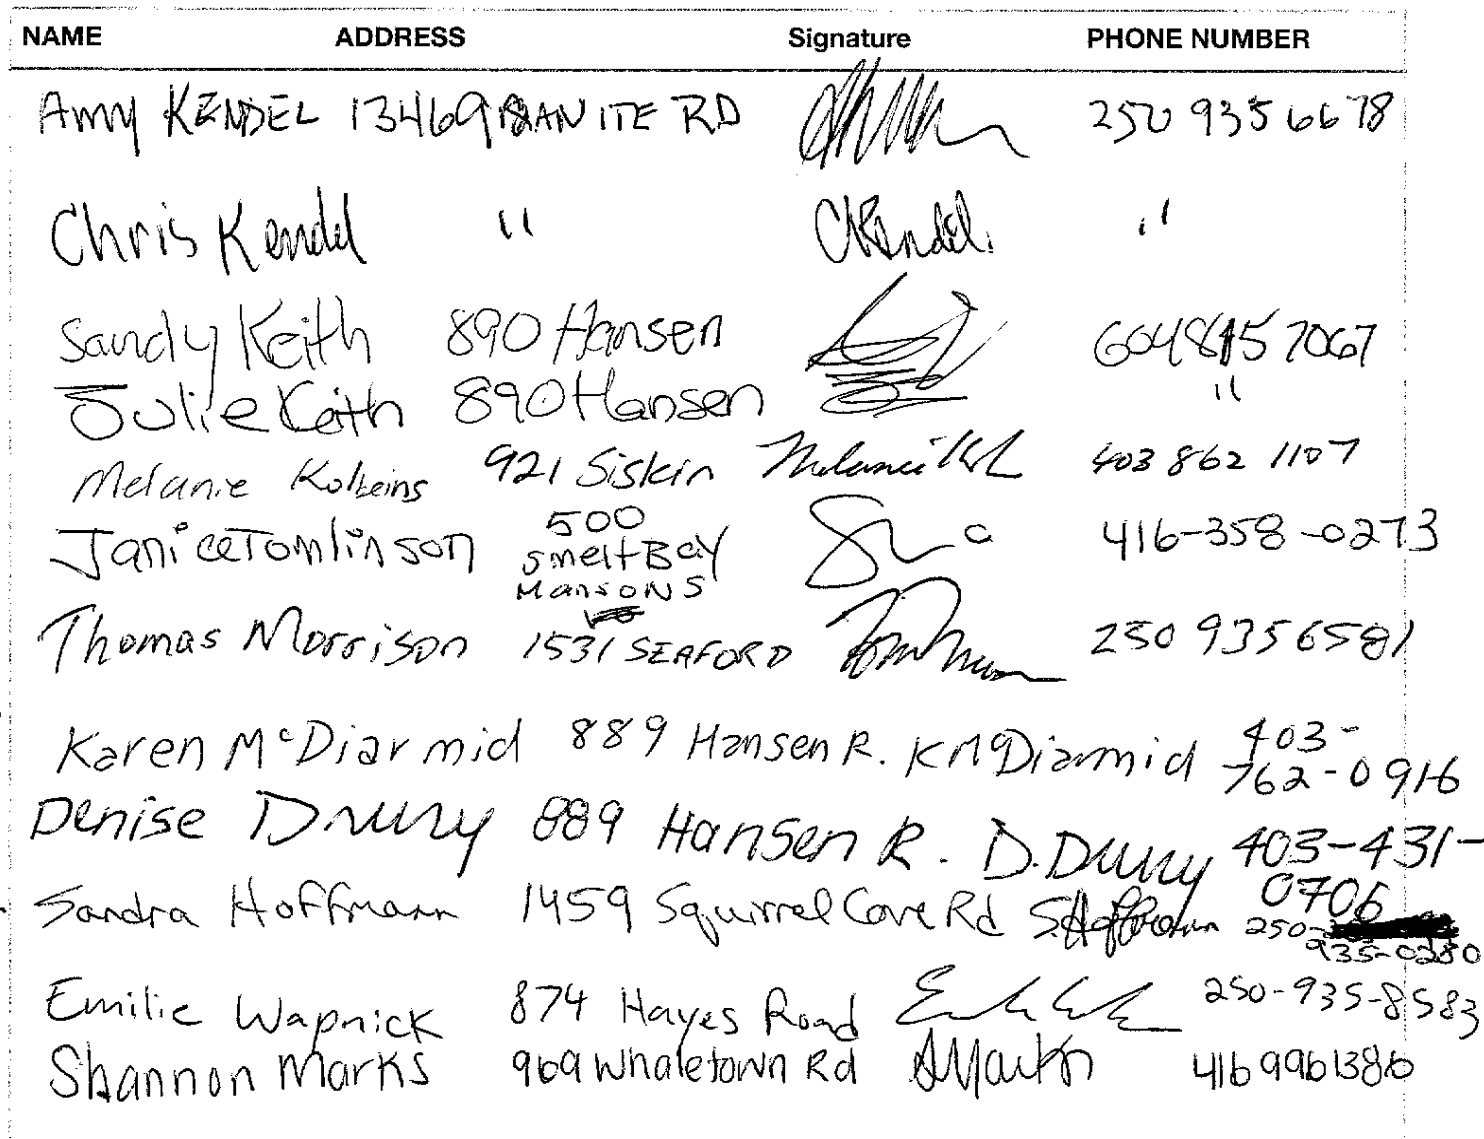 NAME ADDRESS Signature PHONE NUMBER
Amy KENDEL 1346 GRANITE RD 250 935 6678
Chris Kendel " CKendel. "
Sandy Keith 890 Hansen 604 815 7067
Julie Keith 890 Hansen "
Melanie Kolbeins 921 Siskin 403 862 1107
Janice Tomlinson 500 416-358-0273
Smelt Bay
Mansons
Thomas Morrison 1531 SEAFORD 250 935 6581
Karen McDiarmid 889 Hansen R. K McDiarmid 403-
762-0916
Denise Drury 889 Hansen R. D. Drury 403-431-
0706
Sandra Hoffmann 1459 Squirrel Cove Rd S. Hoffmann 250-
935-0280
Emilie Wapnick 874 Hayes Road 250-935-8583
Shannon Marks 969 Whaletown Rd SMarks 416 996 1386